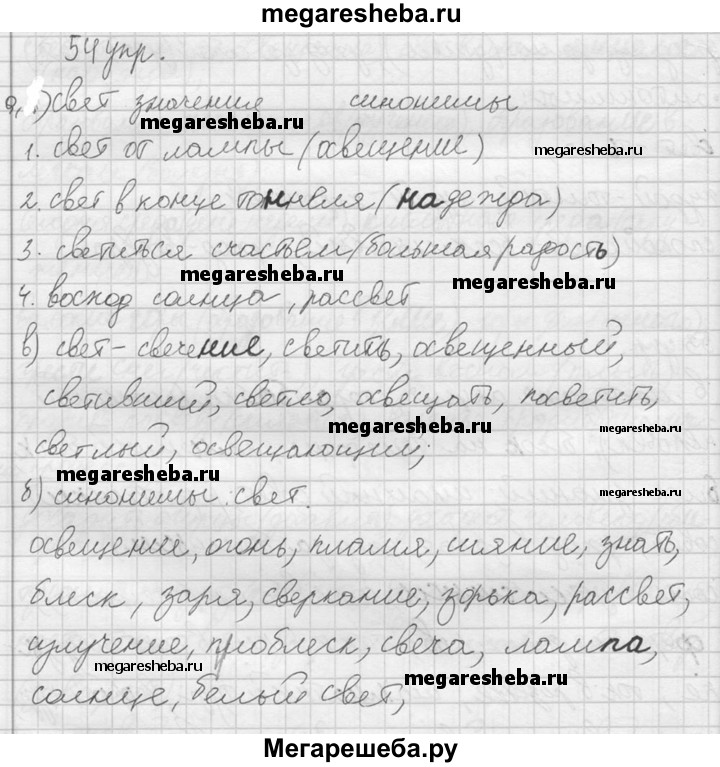 megaresheba.ru
54 упр.
а, 1) свет значения синонимы
megaresheba.ru
1. свет от лампы (освещение)
megaresheba.ru
2. свет в конце тоннеля (надежда)
3. светиться счастьем (большая радость)
megaresheba.ru
megaresheba.ru
4. восход солнца, рассвет
в) свет - свечение, светить, освещенный,
светивший, светло, освещать, посветить,
megaresheba.ru
megaresheba.ru
светлый, освещающий;
megaresheba.ru
б) синонимы: свет.
megaresheba.ru
освещение, огонь, пламя, сияние, знать,
блеск, заря, сверкание, зорька, рассвет,
излучение, проблеск, свеча, лампа,
megaresheba.ru
megaresheba.ru
солнце, белый свет,
Мегарешеба.ру